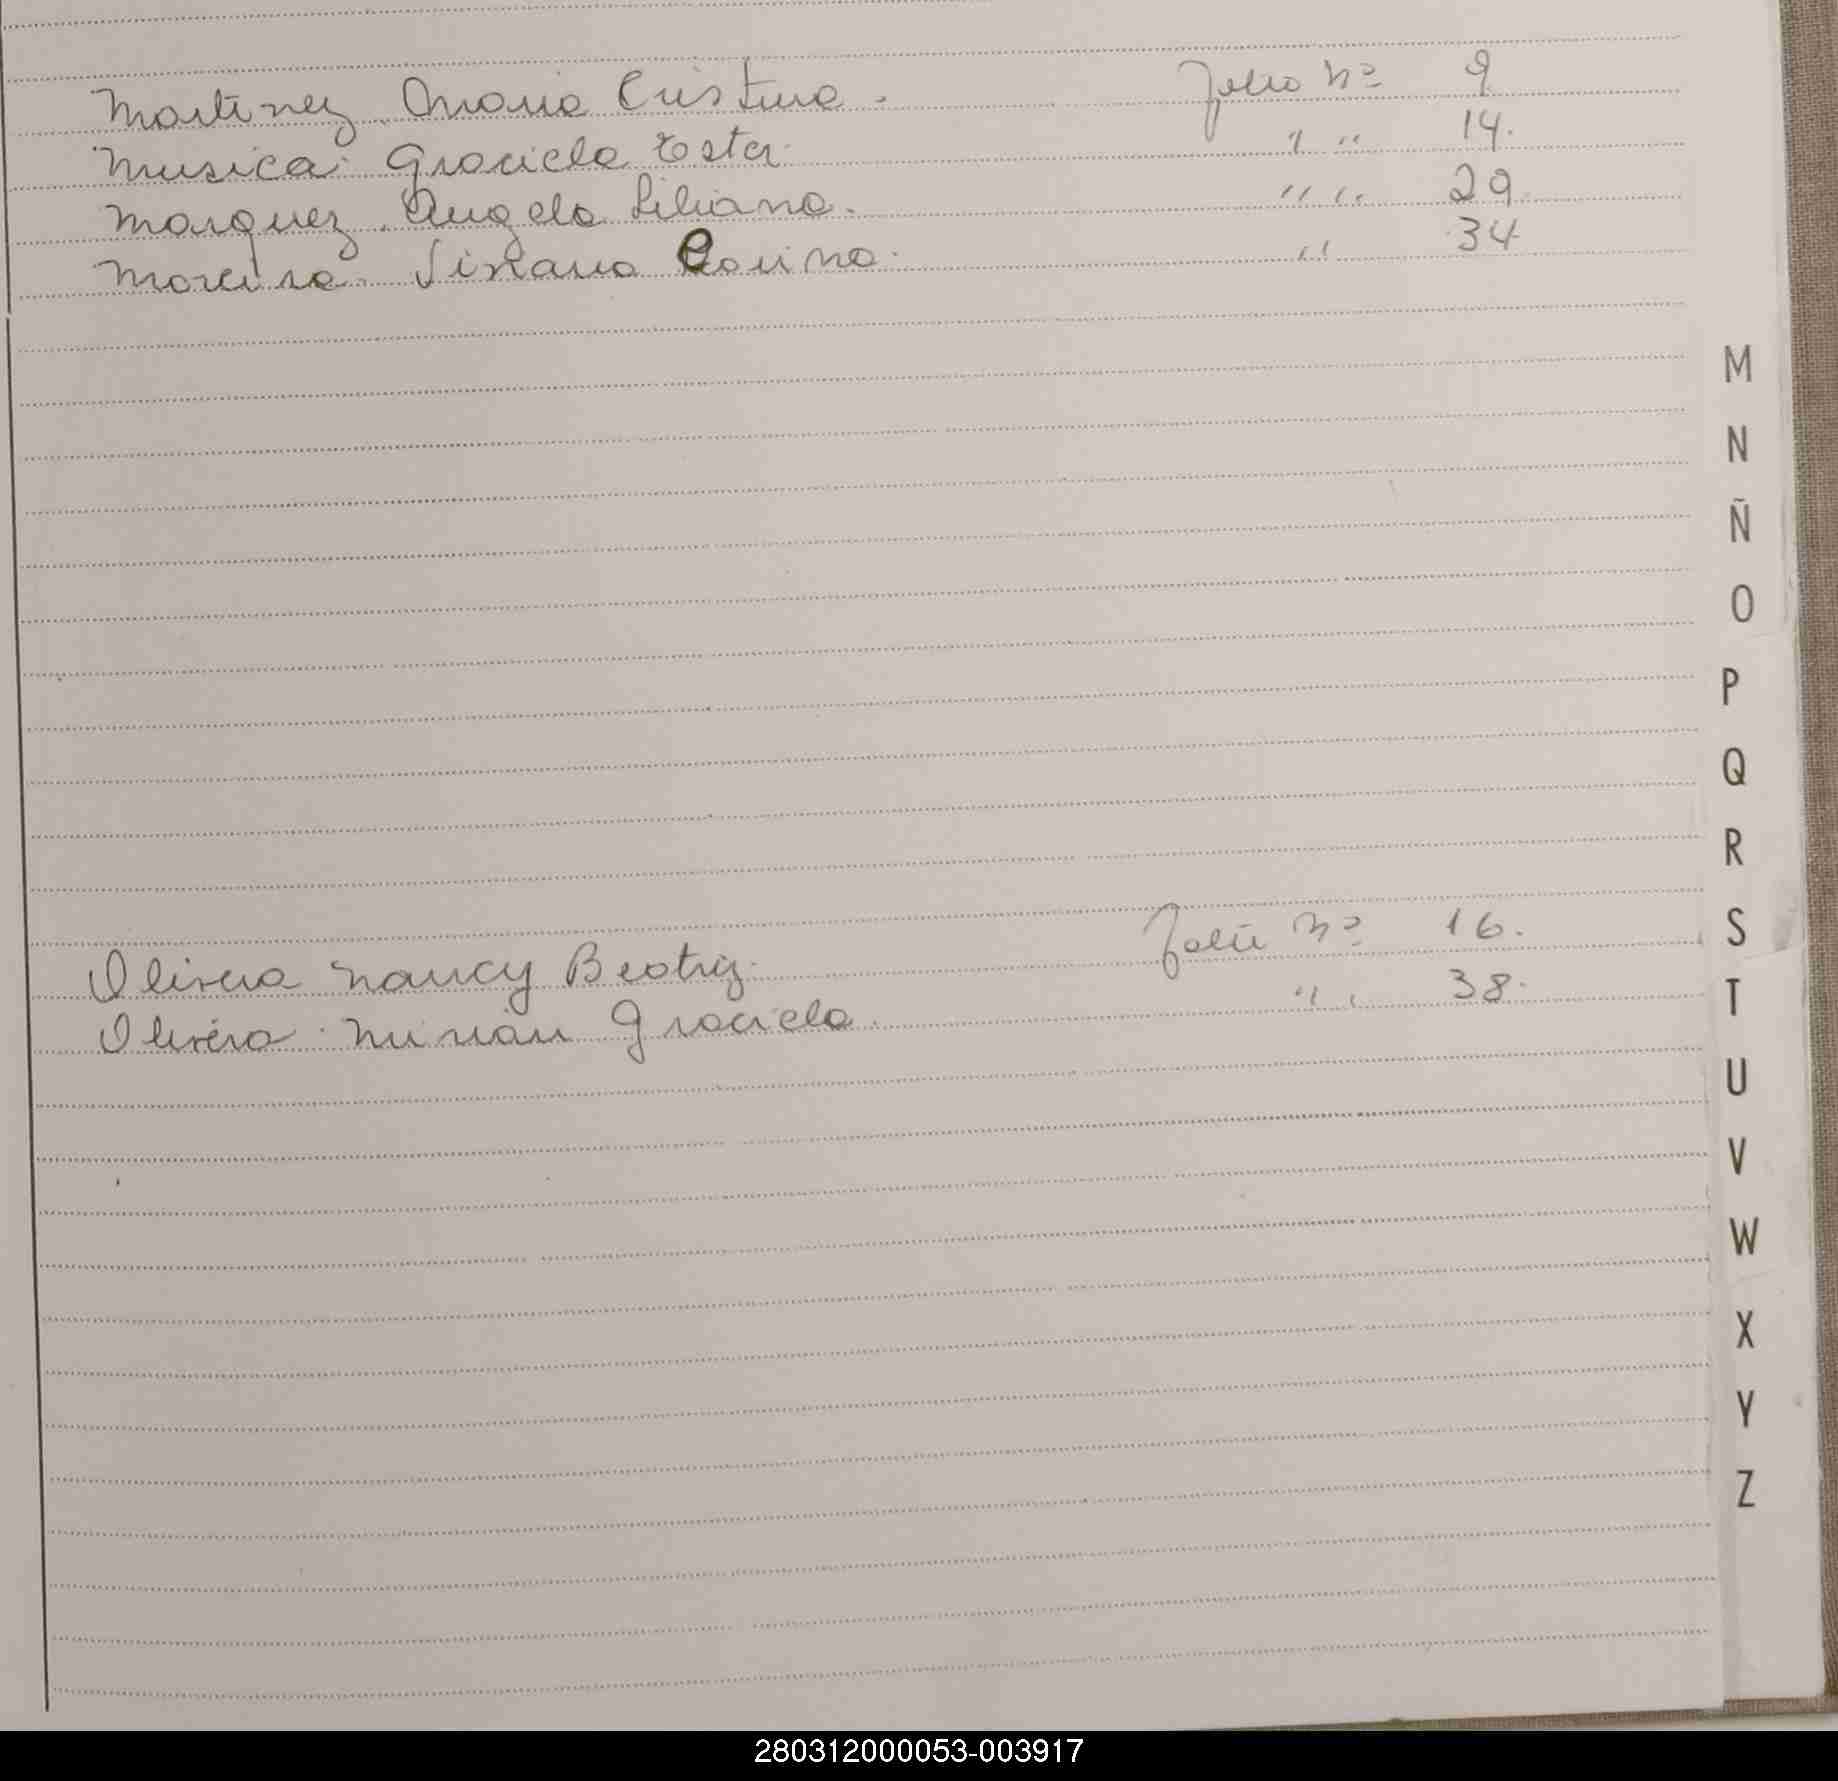 Martinez Maria Cristina. Folio Nº 9
Musica. Graciela Ester. " " 14.
Marquez. Angela Liliana. " " 29.
Moreira. Viviana Carina. " 34
M
N
Ñ
O
P
Q
R
S
T
U
V
W
X
Y
Z
Olivera Nancy Beatriz. Folio Nº 16.
Olivera. Mirian Graciela. " " 38.
280312000053-003917